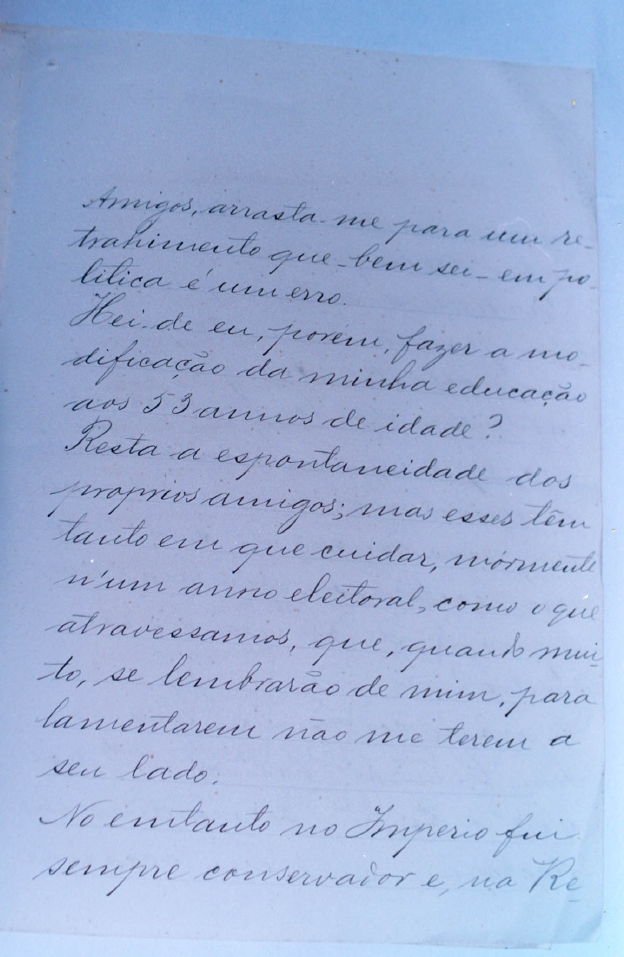 Amigos, arrasta-me para um re-
trahimento que - bem sei - em po-
litica é um erro.
Hei-de eu, porém, fazer a mo-
dificação da minha educação
aos 53 annos de idade?
Resta a espontaneidade dos
proprios amigos; mas esses têm
tanto em que cuidar, mórmente
n'um anno eleitoral, como o que
atravessamos, que, quando mui-
to, se lembrarão de mim, para
lamentarem não me terem a
seu lado.
No emtanto no Imperio fui
sempre conservador e, na Re-